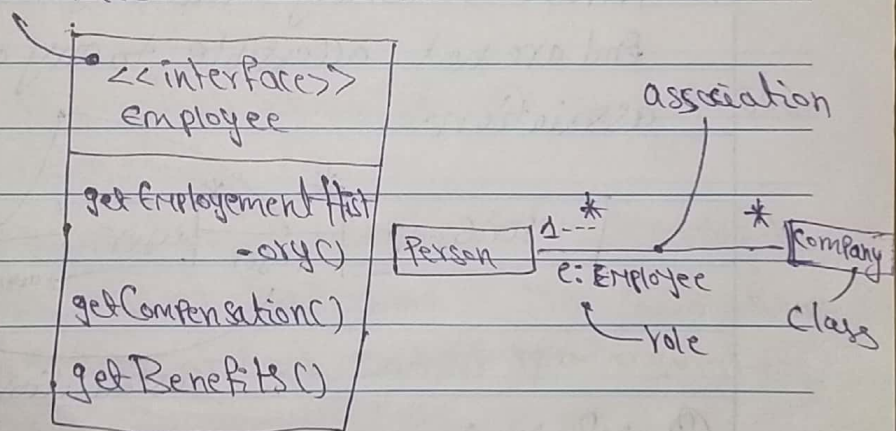 <<interface>>
Employee
getEmployementHist
-ory()
getCompensation()
getBenefits()
association
Person
1---*
*
Company
e: Employee
role
Class